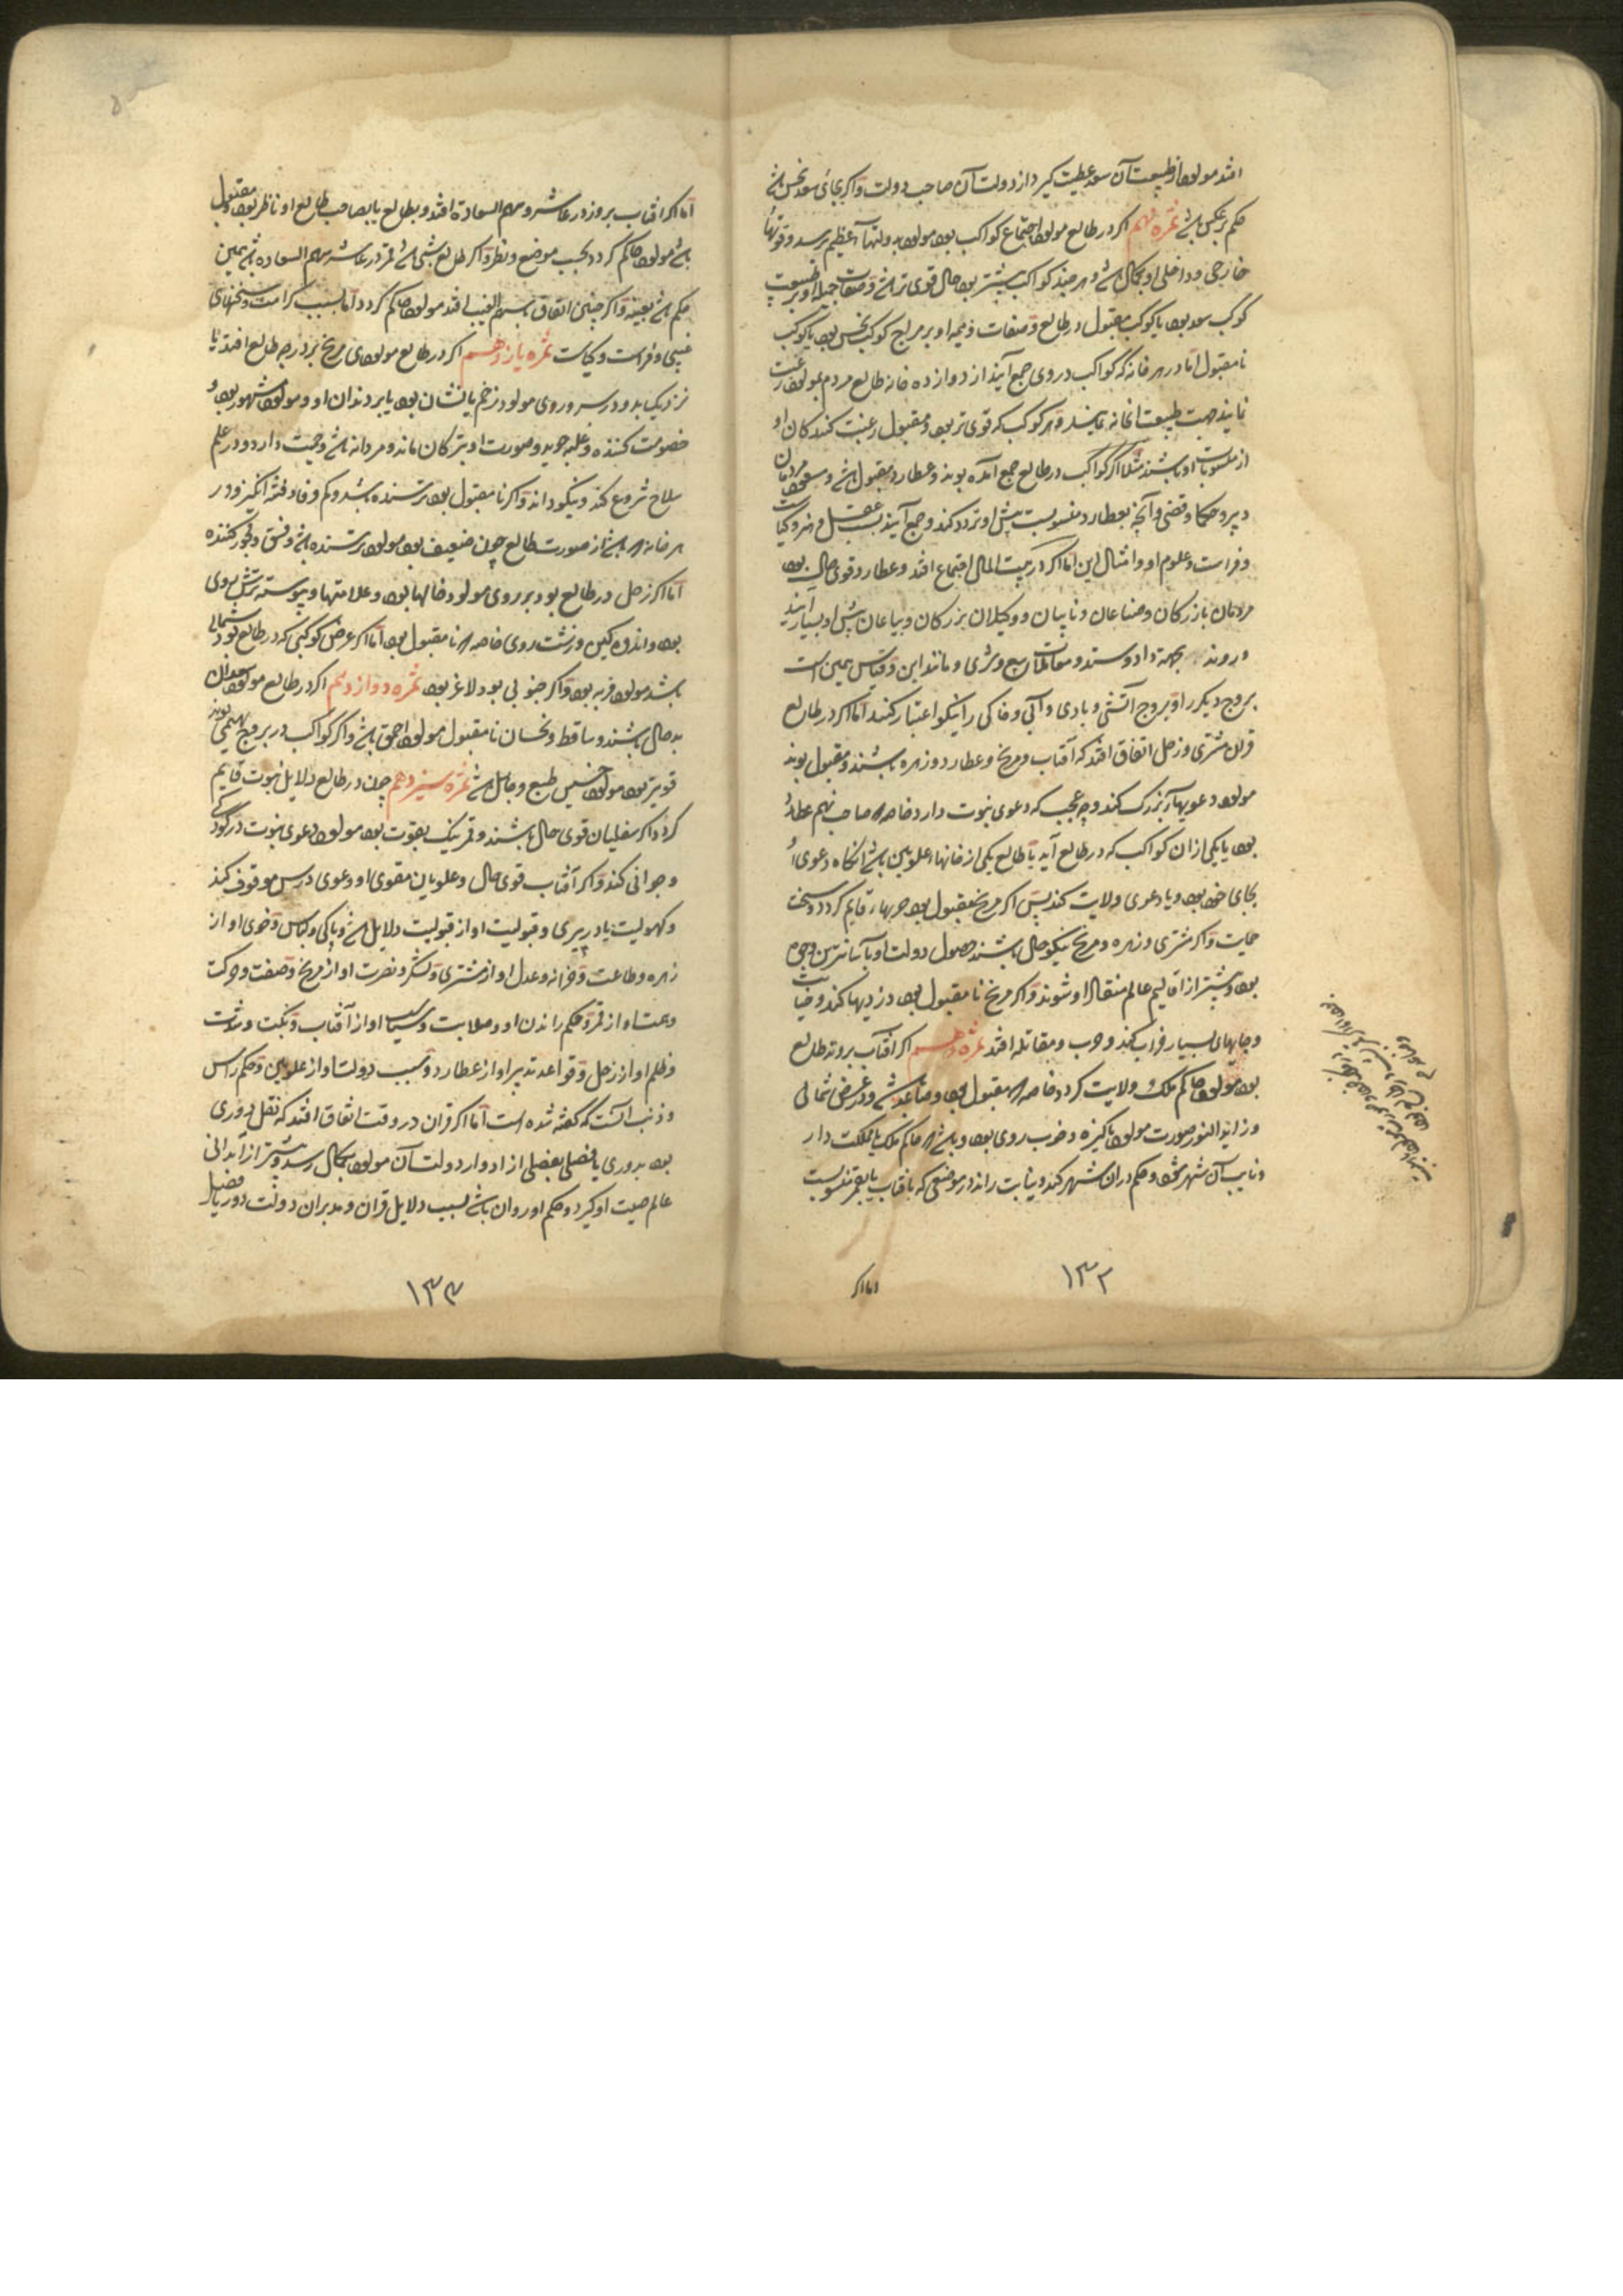 افتد مولود از طبیعت آن سعد عطیت کیرد از دولت آن صاحب دولت و اکر بجای سعد نحس باشد
حکم برعکس باشد ثمره نهم اکر در طالع مولود اجتماع کواکب بود مولود بدولتهاء عظیم برسد و قوتهاء
خارجی و داخلی او بکمال باشد و هر چند کواکب بیشتر بود حال قوی تر باشد و صفات جمیله او بر طبیعت
کوکب سعد بود یا کوکب مقبول در طالع و صفات ذمیمه او بر مزاج کوکب نحس بود یا کوکب
نا مقبول اما در هر خانه که کواکب در وی جمع آیند از دوازده خانه طالع مردم بمولود رغبت
نمایند جهت طبیعت آنخانه نمایند و هر کوکب که قوی تر بود و مقبول رغبت کنندکان او
از منسوبات او باشند مثلا اکر کواکب در طالع جمع آمده بوند و عطارد مقبول باشد و مسعود مردمان
دبیر و حکما و قضی و آنچه بعطارد منسوبست پیش او تردد کنند و جمع آیند بسبب عقل و هنر و کیاست
و فراست و علوم او و امثال این اما اکر در بیت المال اجتماع افتد و عطارد قوی حال بود
مردمان بازرکان و صناعان و نایبان و وکیلان بزرکان و بیاعان پیش او بسیار آیند
و روند بجهة داد و ستد و معاملات بیع و شری و مانند این و قیاس همین است
بروج دیکر را و بروج آتشی و بادی و آبی و خاکی را نیکو اعتبار کنند اما اکر در طالع
قران مشتری و زحل اتفاق افتد که آفتاب و مریخ و عطارد و زهره باشند و مقبول بوند
مولود دعویهاء بزرک کند و چه عجب که دعوی نبوت دارد خاصه که صاحب نهم عطارد
بود یا یکی ازان کواکب که در طالع آید یا طالع یکی از خانهاء علویین باشد آنکاه دعوی او
بجای خود بود و یا دعوی ولایت کند پس اکر مریخ مقبول بود حربها، قایم کردد و سخت
حمایت و اکر مشتری و زهره و مریخ نیکو حال باشند حصول دولت او بآسانترین وجهی
بود و بیشتر از اقالیم عالم منقاد او شوند و اکر مریخ نا مقبول بود دزدیها کند و خیانت
و جایهای بسیار خراب کند و حرب و مقاتله افتد ثمره دهم اکر آفتاب بر وتد طالع
بود مولود حاکم ملک و ولایت کردد خاصه که مقبول بود و صاعد باشد و در عرض شمالی
و زاید النور صورت مولود پاکیزه و خوب روی بود و باشد که حاکم ملک یا مملکت دار
و نایب آن شهر شود و حکم دران شهر کند و نیابت راند از موضعی که بافتاب یا بقمر منسوبست
اما اکر
۱۳۲
اما اکر افتاب بروز در عاشر و سهم السعادة افتد و بطالع یا بصاحب طالع او ناظر بود و مقبول
باشد مولود حاکم کردد بحسب موضع و نظر و اکر طالع شبی باشد قمر در عاشر و سهم السعاده باشد همین
حکم باشد بعینه و اکر چنین اتفاق بسهم الغیب افتد مولود حاکم کردد اما بسبب کرامت و سخنهای
غیبی و فراست و کیاست ثمره یازدهم اکر در طالع مولودی مریخ بر درجه طالع افتد یا
نزدیک بدو در سر و روی مولود زخم یا نشان بود یا بر دندان او و مولود مشهور بود و
خصومت کننده و غلبه جوید و صورت او بترکان ماند و مردانه باشد و حمیت دارد و در علم
سلاح شروع کند و نیکو داند و اکر نا مقبول بود ترسنده باشد و کم وفا و فتنه انکیز و در
هر خانه که باشد از صورت طالع چون ضعیف بود مولود ترسنده باشد و فسق و فجور کننده
اما اکر زحل در طالع بود بر روی مولود خالها بود و علامتها و پیوسته ترش روی
بود و اندوه کین و زشت روی خاصه که نا مقبول بود اما اکر عرض کوکبی که در طالع بود شمالی
باشد مولود فربه بود و اکر جنوبی بود لاغر بود ثمره دوازدهم اکر در طالع مولود سعدان
بد حال باشند و ساقط و نحسان نا مقبول مولود احمق باشد و اکر کواکب در بروج بهیمی بوند
قویتر بود مولود خسیس طبع و جاهل باشد ثمره سیزدهم چون در طالع دلایل نبوت قایم
کردد اکر سفلیان قوی حال باشند و قمر نیک بقوت بود مولود دعوی نبوت در کودکی
و جوانی کند و اکر آفتاب قوی حال و علویان مقوی او دعوی در سن موقوف کند
و کهولیت یا در پیری و قبولیت او از قبولیت دلایل باشد و پاکی و لباس و خوی او از
زهره و طاعت و خزانه و عدل او از مشتری و لشکر و نصرت او از مریخ و صفت و حرکت
و همت او از قمر و حکم راندن او و صلابت و سیاست او از آفتاب و نکبت و شدت
و ظلم او از زحل و قواعد تدبیر او از عطارد و سبب دولت او از علویین و حکم راس
و ذنب آنست که کفته شده است اما اکر قران در وقت اتفاق افتد که نقل دوری
بود بدوری یا فصلی بفصلی از ادوار دولت آن مولود بکمال رسد و بیشتر از آبدانی
عالم صیت او کیرد و حکم او روان باشد بسبب دلایل قران و مدبران دولت دور یا فصل
۱۳۳